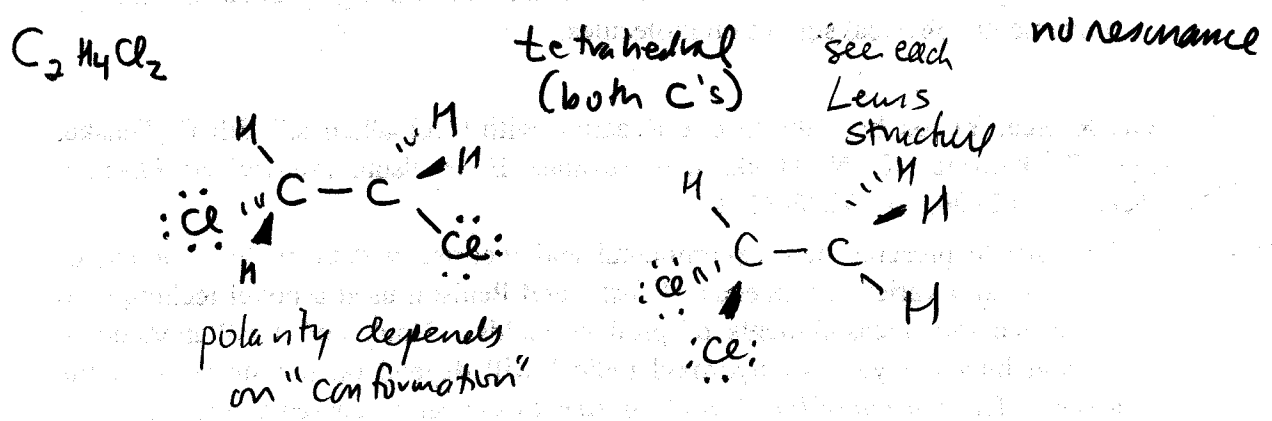 C2H4Cl2
tetrahedral
(both C's)
see each
Lewis
structure
no resonance
H H
H
:Cl C – C
H Cl:
polarity depends
on "conformation"
H H
H
C – C
:Cl H
:Cl: